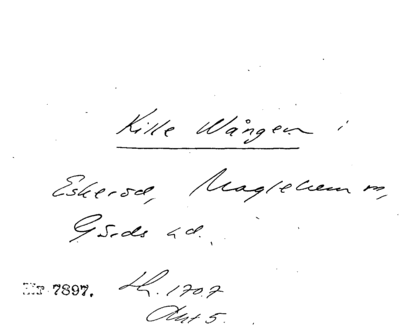 Kille Wången i
Eskeröd, Maglehem sn,
Gärds hd.
Nr 7897. Lh. 1707
Akt 5.